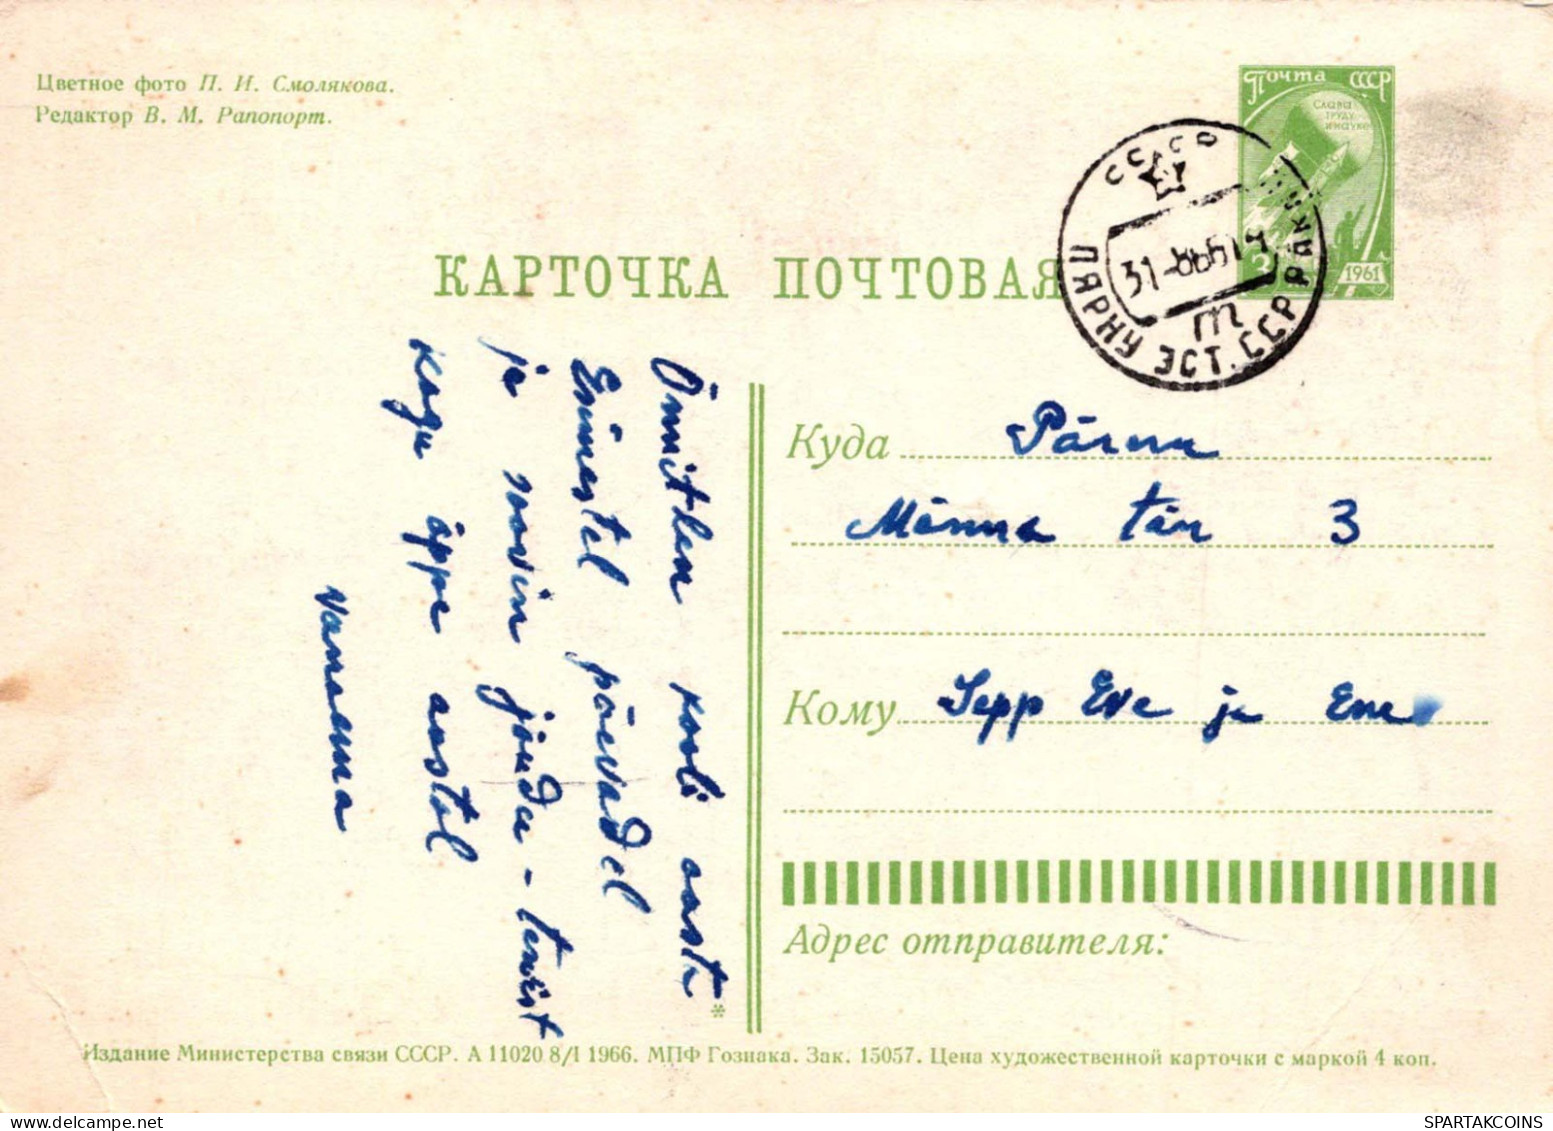 Цветное фото П. И. Смолякова.
Редактор В. М. Рапопорт.
Почта СССР
Слава
труду
и науке
3
1961
СССР
31-8 66
ПЯРНУ ЭСТ. ССР
КАРТОЧКА ПОЧТОВАЯ
Õnnitlen kooli aasta
Esimestel päevadel
ja soovin jõudu-tervist
Kogu õppe aastal
vanaema
Куда Pärnu
Männa tän 3
Кому Sepp Eve ja Ene
Адрес отправителя:
*
Издание Министерства связи СССР. А 11020 8/I 1966. МПФ Гознака. Зак. 15057. Цена художественной карточки с маркой 4 коп.
SPARTAKCOINS